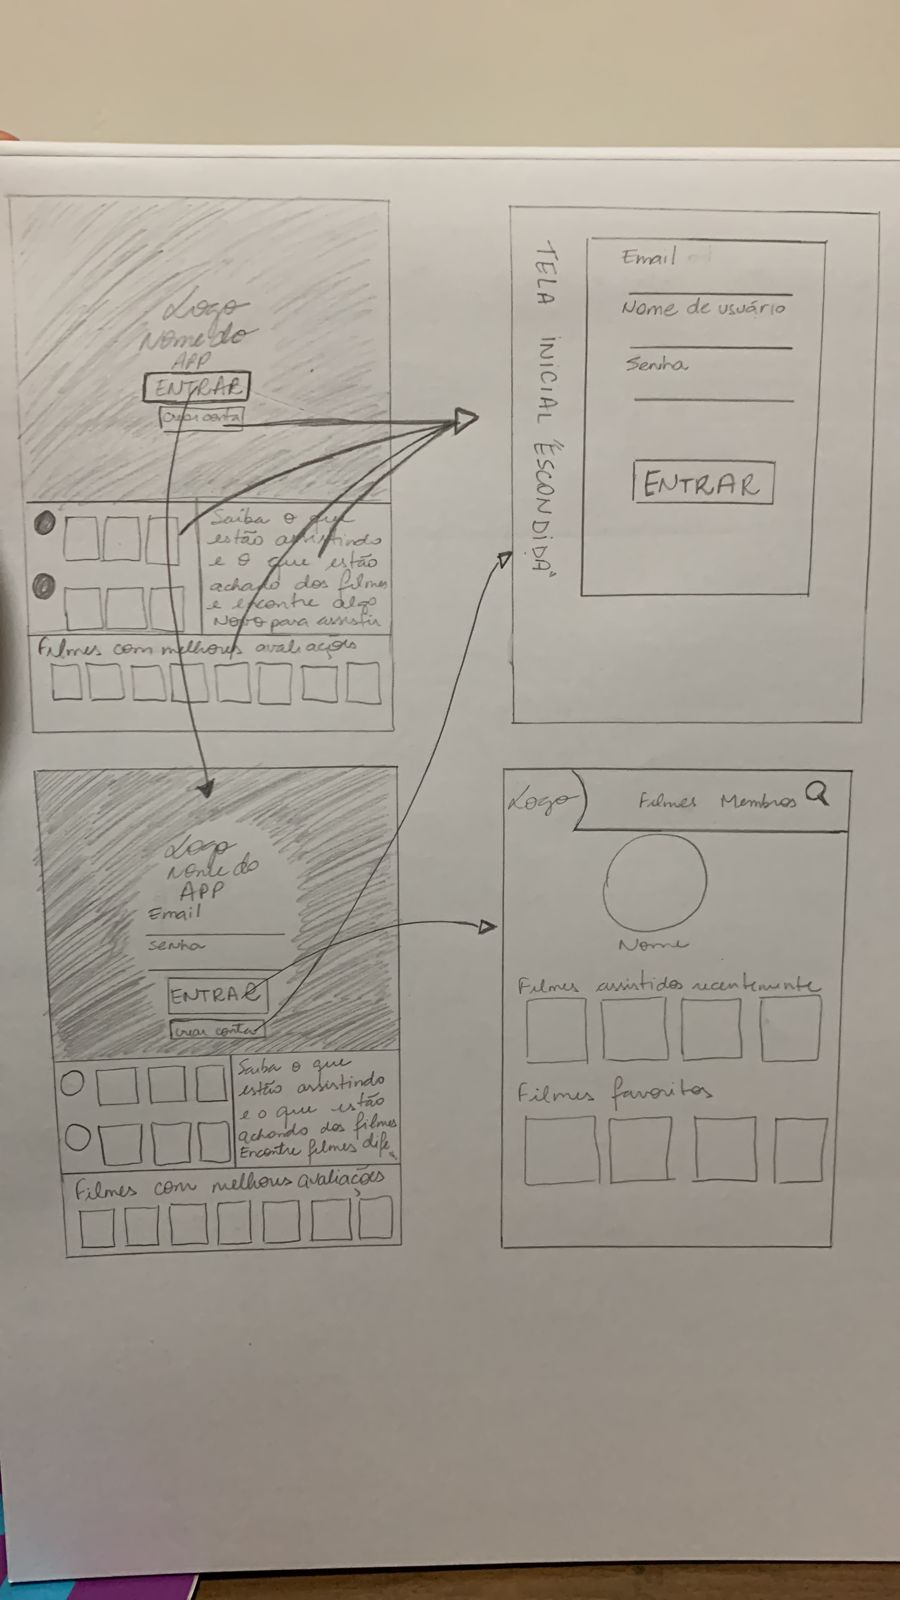 Logo
Nome do
APP
ENTRAR
criar conta
Saiba o que
estão assistindo
e o que estão
achado dos filmes
e encontre algo
Novo para assistir
Filmes com melhores avaliações
TELA INICIAL "ESCONDIDA"
Email
Nome de usuário
Senha
ENTRAR
Logo
Nome do
APP
Email
senha
ENTRAR
criar conta
Saiba o que
estão assistindo
e o que estão
achando dos filmes
Encontre filmes dife
Filmes com melhores avaliações
Logo
Filmes Membros
Nome
Filmes assistidos recentemente
Filmes favoritos